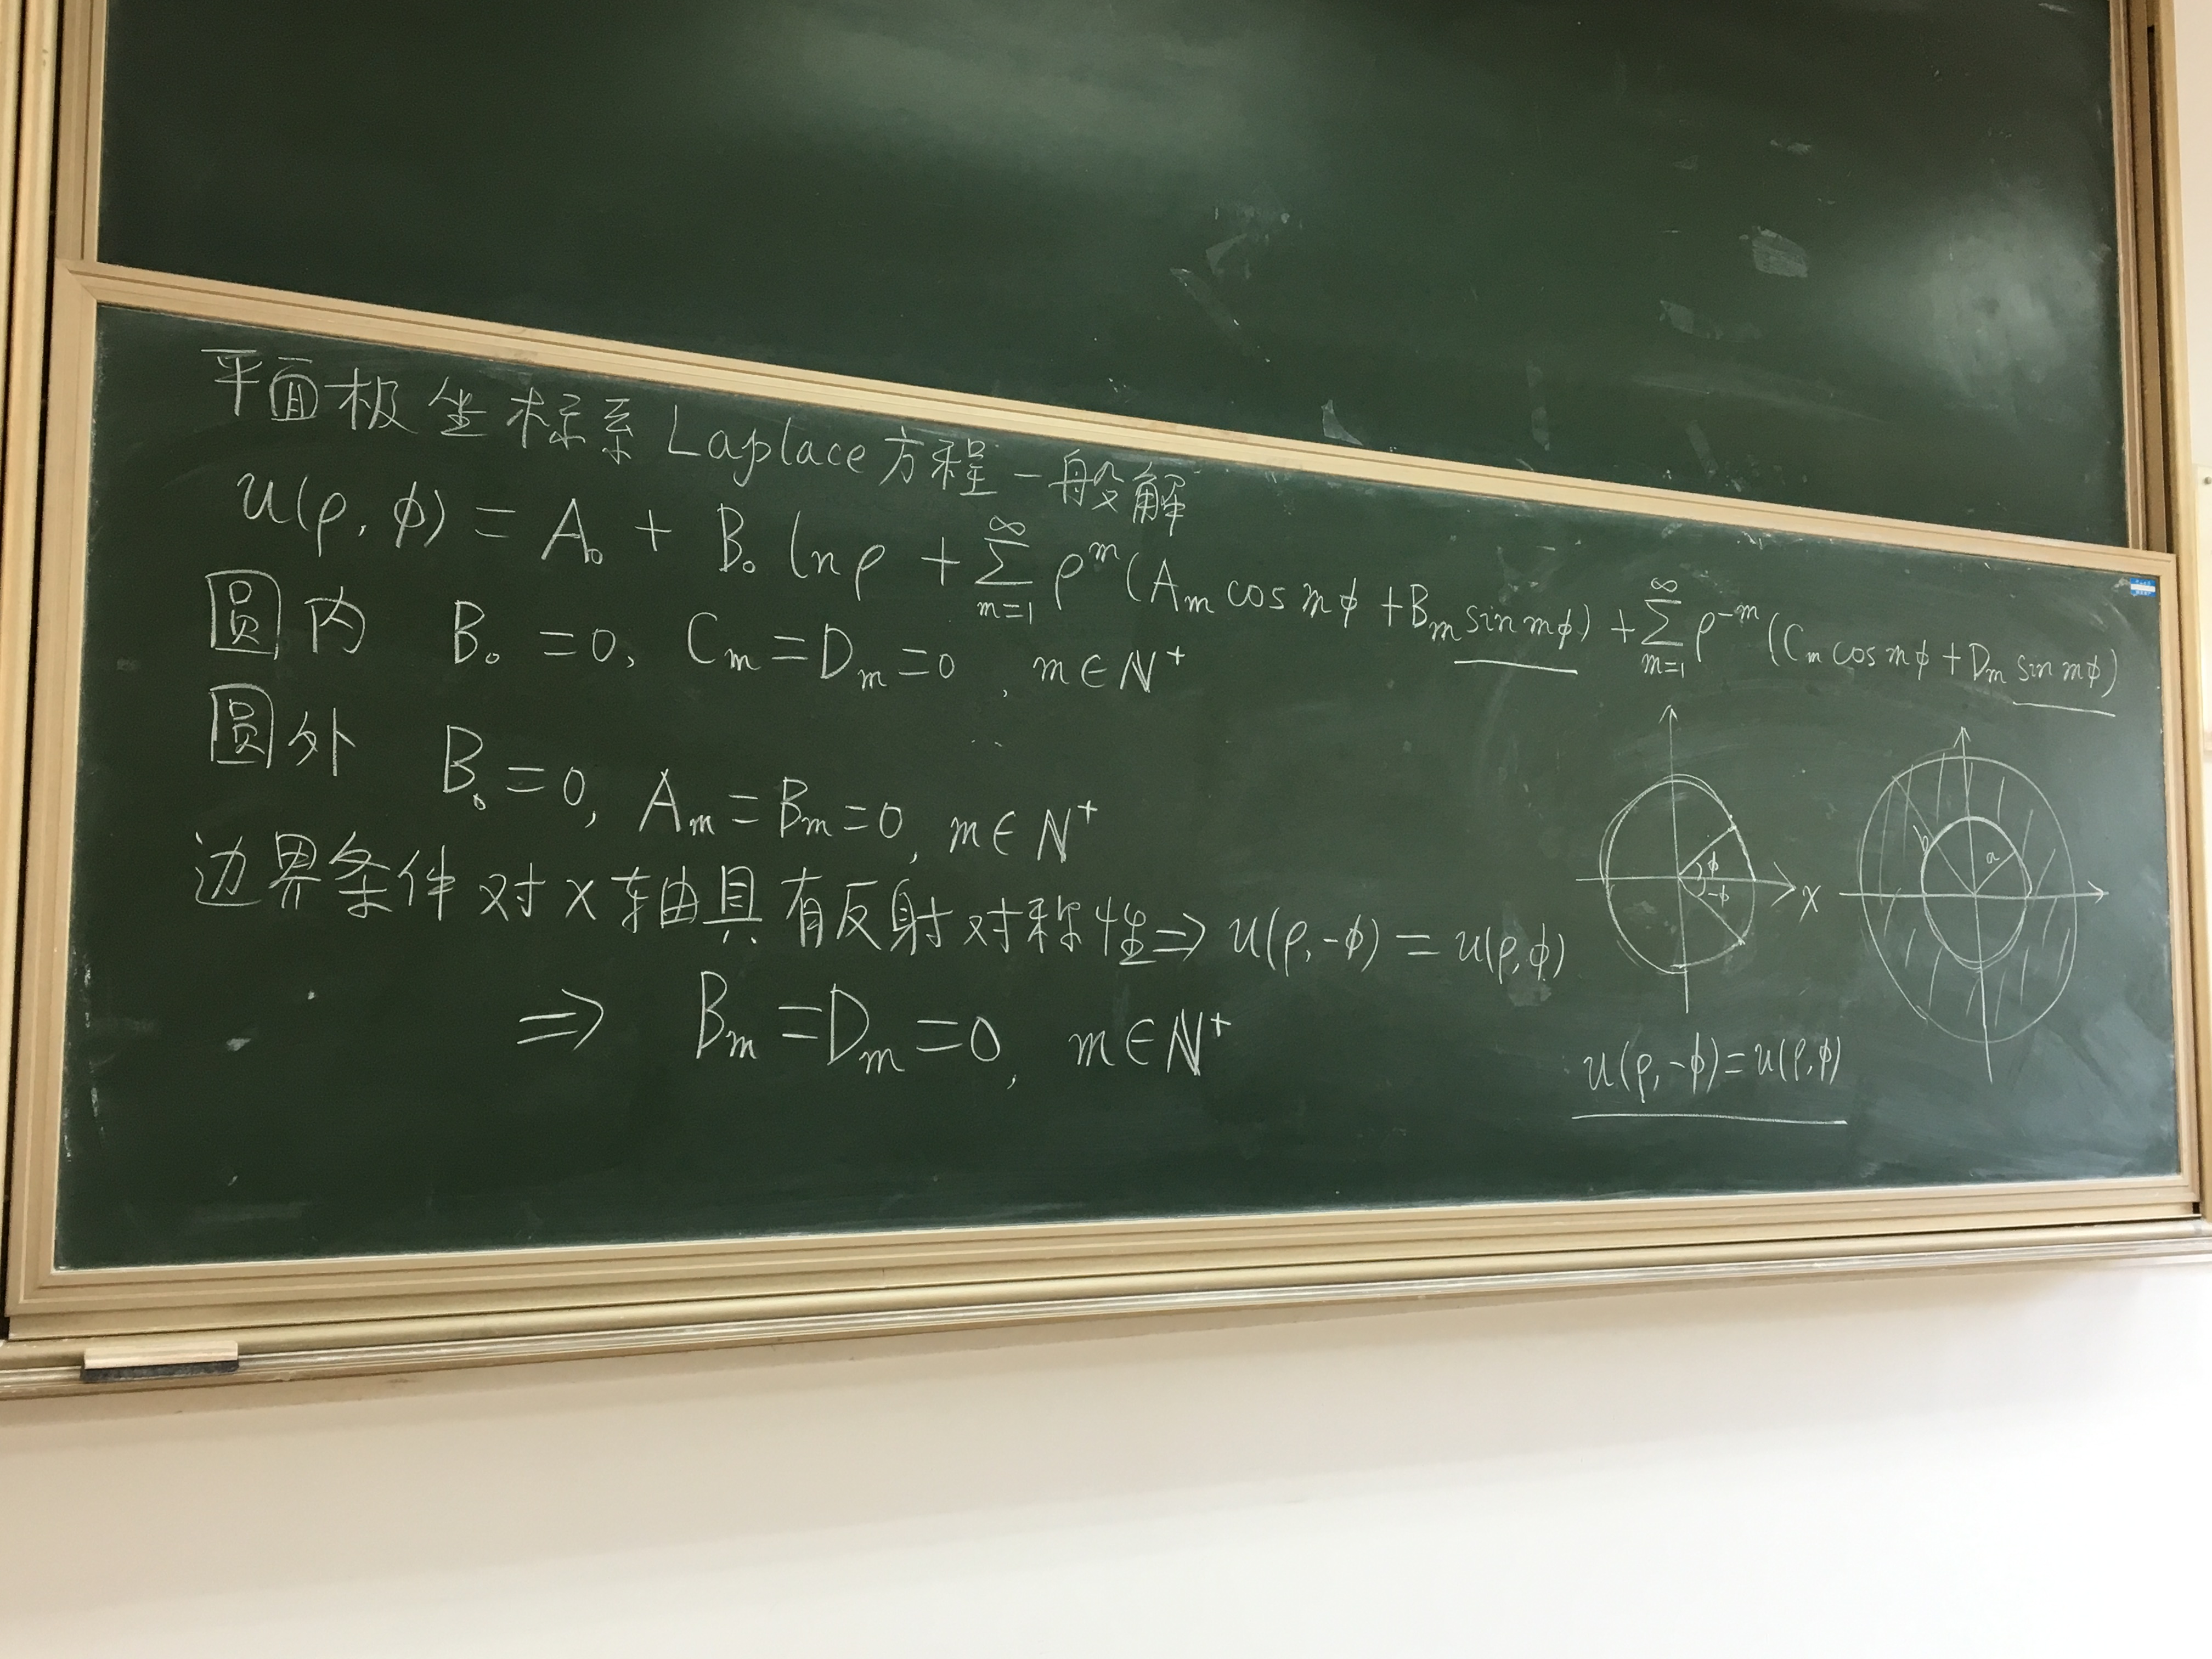 平面极坐标系Laplace方程一般解
u(ρ,φ) = A₀ + B₀ lnρ + ∑_{m=1}^{∞} ρ^m (A_m cos mφ + B_m sin mφ) + ∑_{m=1}^{∞} ρ^{-m} (C_m cos mφ + D_m sin mφ)
圆内 B₀ = 0, C_m = D_m = 0, m ∈ N⁺
圆外 B₀ = 0, A_m = B_m = 0, m ∈ N⁺
边界条件对x轴具有反射对称性 ⇒ u(ρ,-φ) = u(ρ,φ)
⇒ B_m = D_m = 0, m ∈ N⁺
φ
-φ
x
b
a
u(ρ,-φ) = u(ρ,φ)